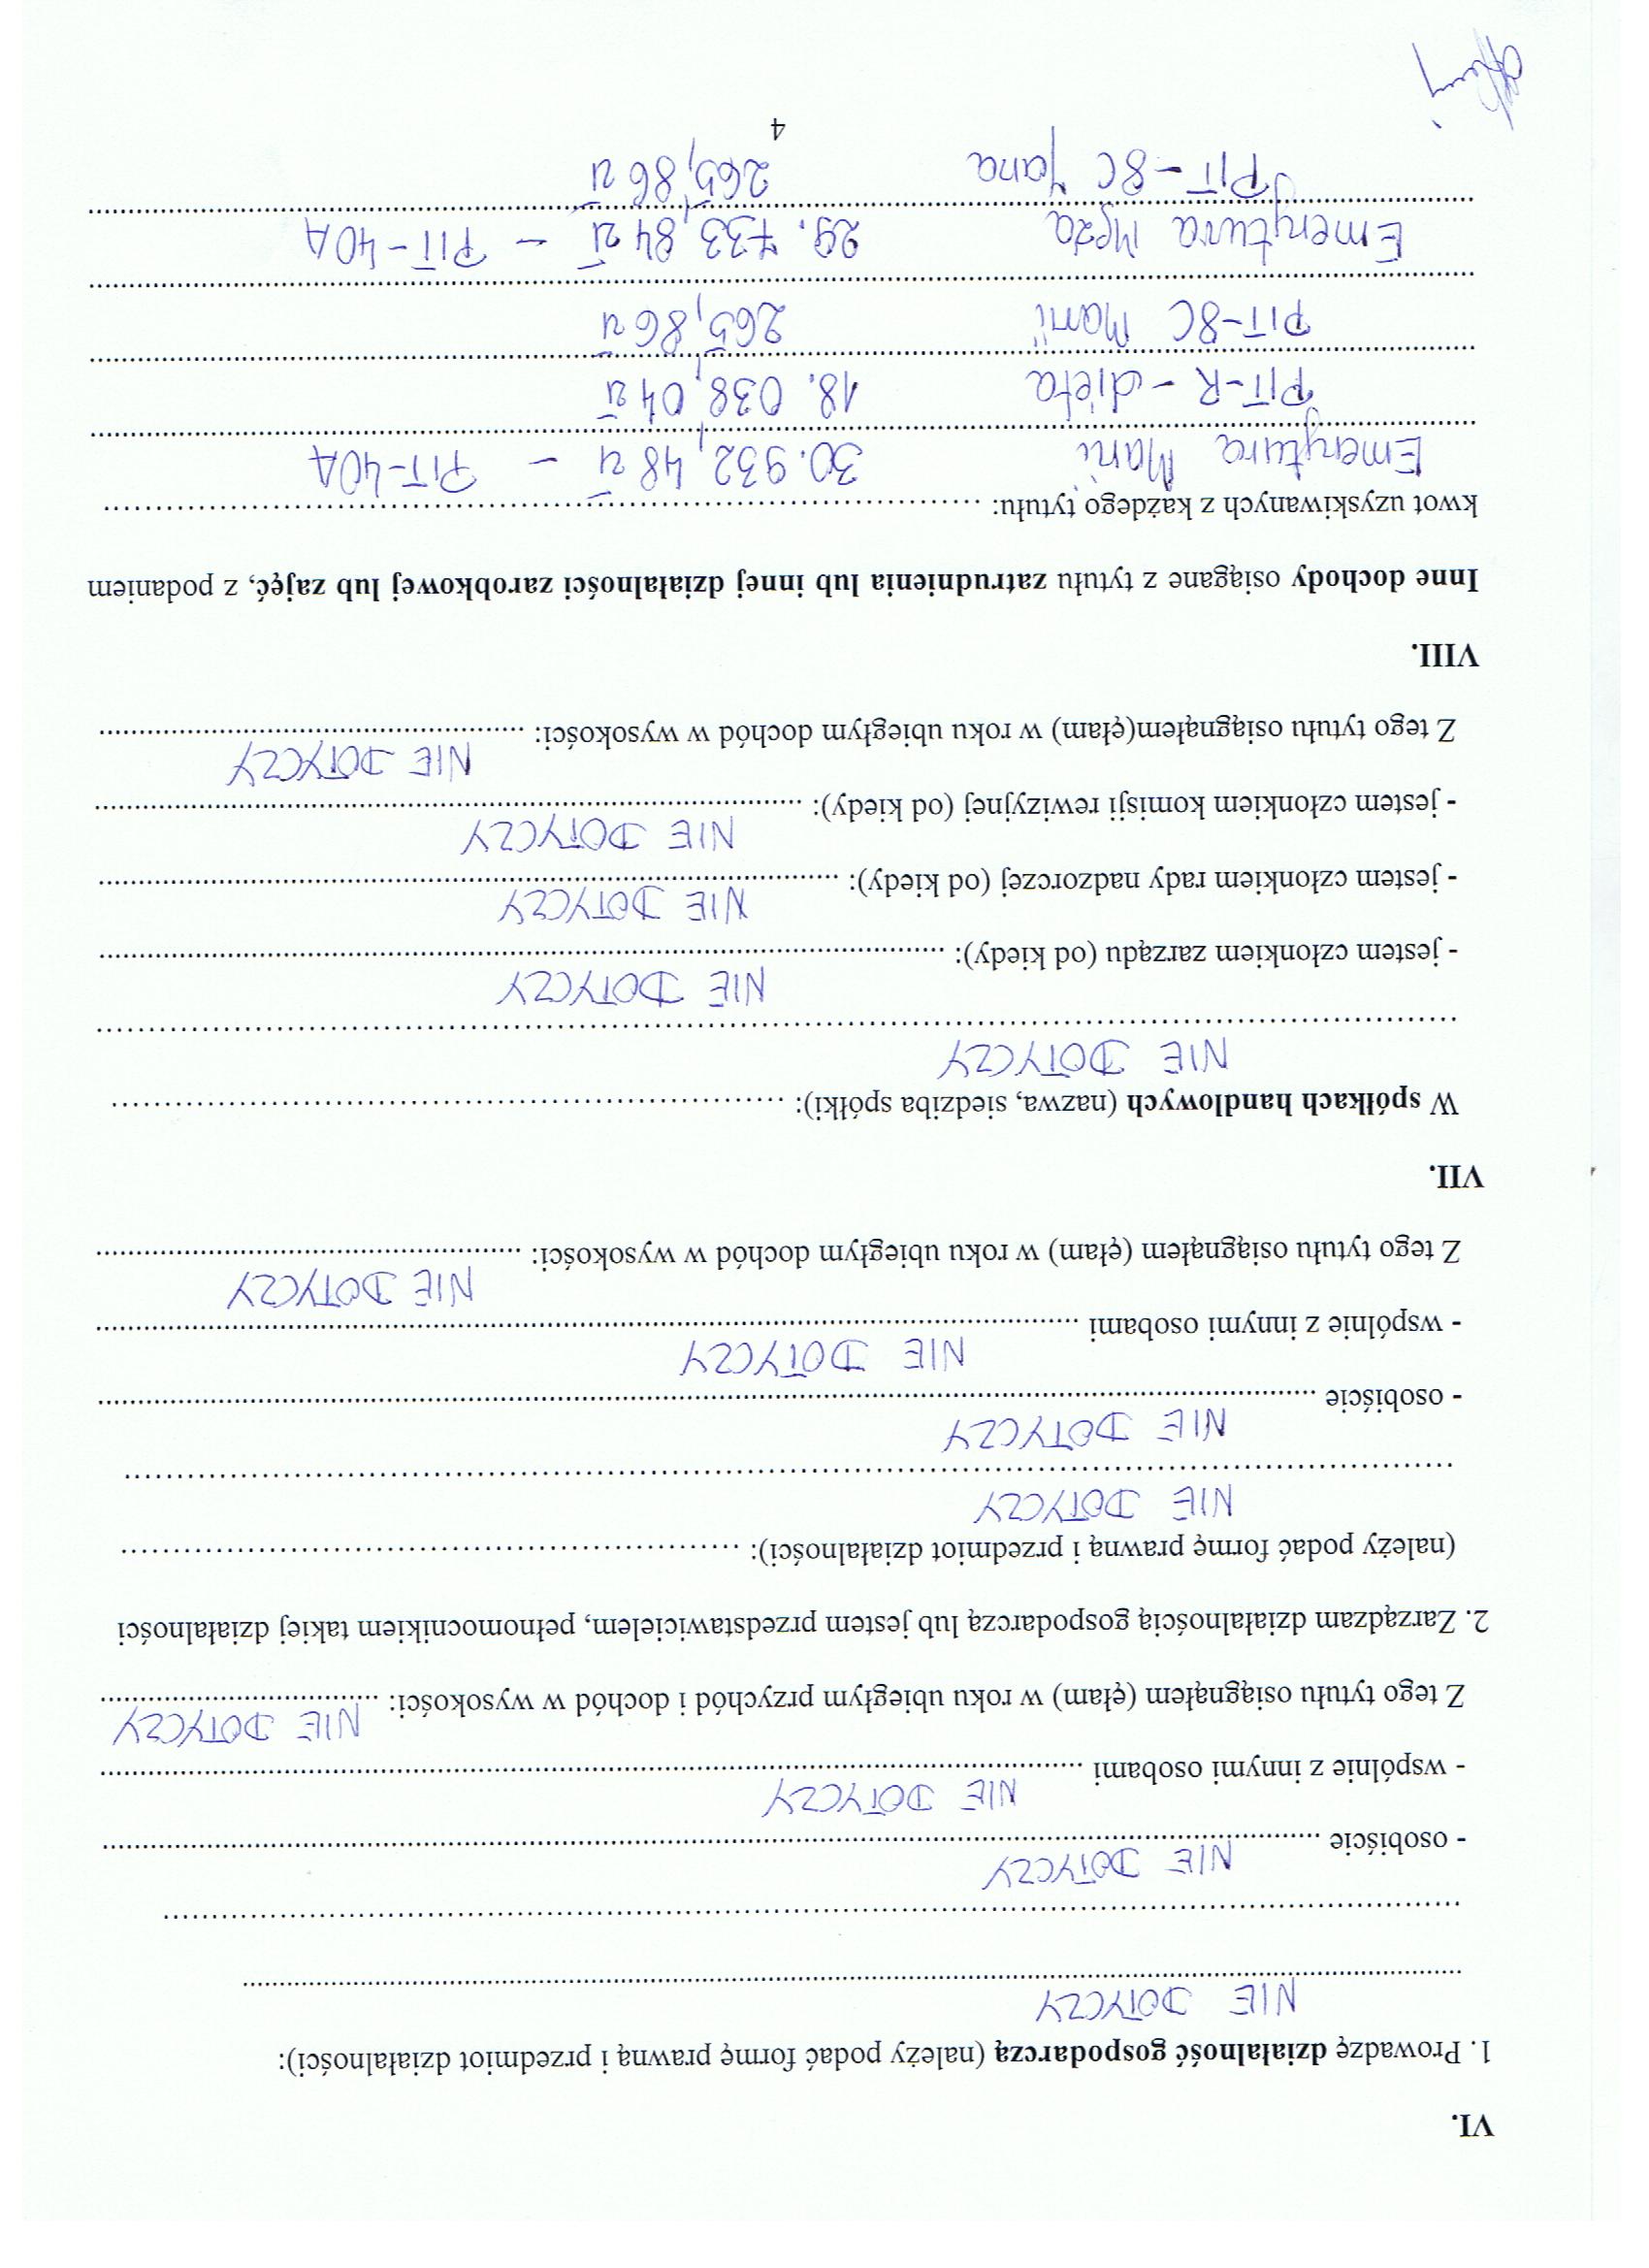 VI.
1. Prowadzę działalność gospodarczą (należy podać formę prawną i przedmiot działalności):
NIE DOTYCZY
- osobiście NIE DOTYCZY
- wspólnie z innymi osobami NIE DOTYCZY
Z tego tytułu osiągnąłem (ęłam) w roku ubiegłym przychód i dochód w wysokości: NIE DOTYCZY
2. Zarządzam działalnością gospodarczą lub jestem przedstawicielem, pełnomocnikiem takiej działalności
(należy podać formę prawną i przedmiot działalności):
NIE DOTYCZY
- osobiście NIE DOTYCZY
- wspólnie z innymi osobami NIE DOTYCZY
Z tego tytułu osiągnąłem (ęłam) w roku ubiegłym dochód w wysokości: NIE DOTYCZY
VII.
W spółkach handlowych (nazwa, siedziba spółki):
NIE DOTYCZY
- jestem członkiem zarządu (od kiedy): NIE DOTYCZY
- jestem członkiem rady nadzorczej (od kiedy): NIE DOTYCZY
- jestem członkiem komisji rewizyjnej (od kiedy): NIE DOTYCZY
Z tego tytułu osiągnąłem(ęłam) w roku ubiegłym dochód w wysokości: NIE DOTYCZY
VIII.
Inne dochody osiągane z tytułu zatrudnienia lub innej działalności zarobkowej lub zajęć, z podaniem
kwot uzyskiwanych z każdego tytułu:
Emerytura Marii 30.932,48 zł - PIT-40A
PIT-R - dieta 18.038,04 zł
PIT-8C Marii 265,86 zł
Emerytura Męża 29.733,84 zł - PIT-40A
PIT-8C Jana 265,86 zł
4